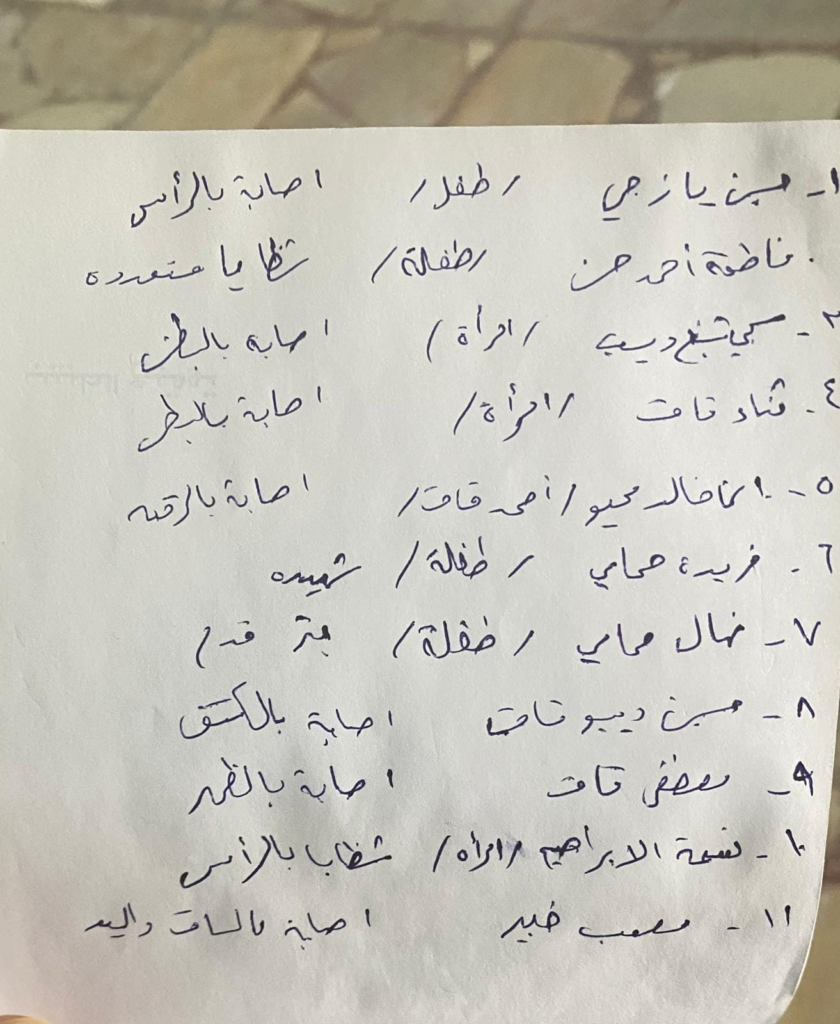 ١- حسين يازجي /طفل/ اصابة بالرأس
. فاطمة أحمد حسن /طفلة/ شظايا متعدده
٣- ديب /امرأة/ اصابه بالبطن
٤- ثناء قات /امرأة/ اصابة بالبطن
٥- خالد محيو /أحمد قات/ اصابة بالرقبه
٦- فريدة محامي /طفلة/ شهيده
٧- محامي /طفلة/ بتر قدم
٨- حسين ديبو قات اصابة بالكتف
٩- مصطفى قات اصابة بالظهر
١٠- نعمة الابراهيم /امرأه/ شظايا بالرأس
١١- مصعب خبير اصابة بالساق واليد